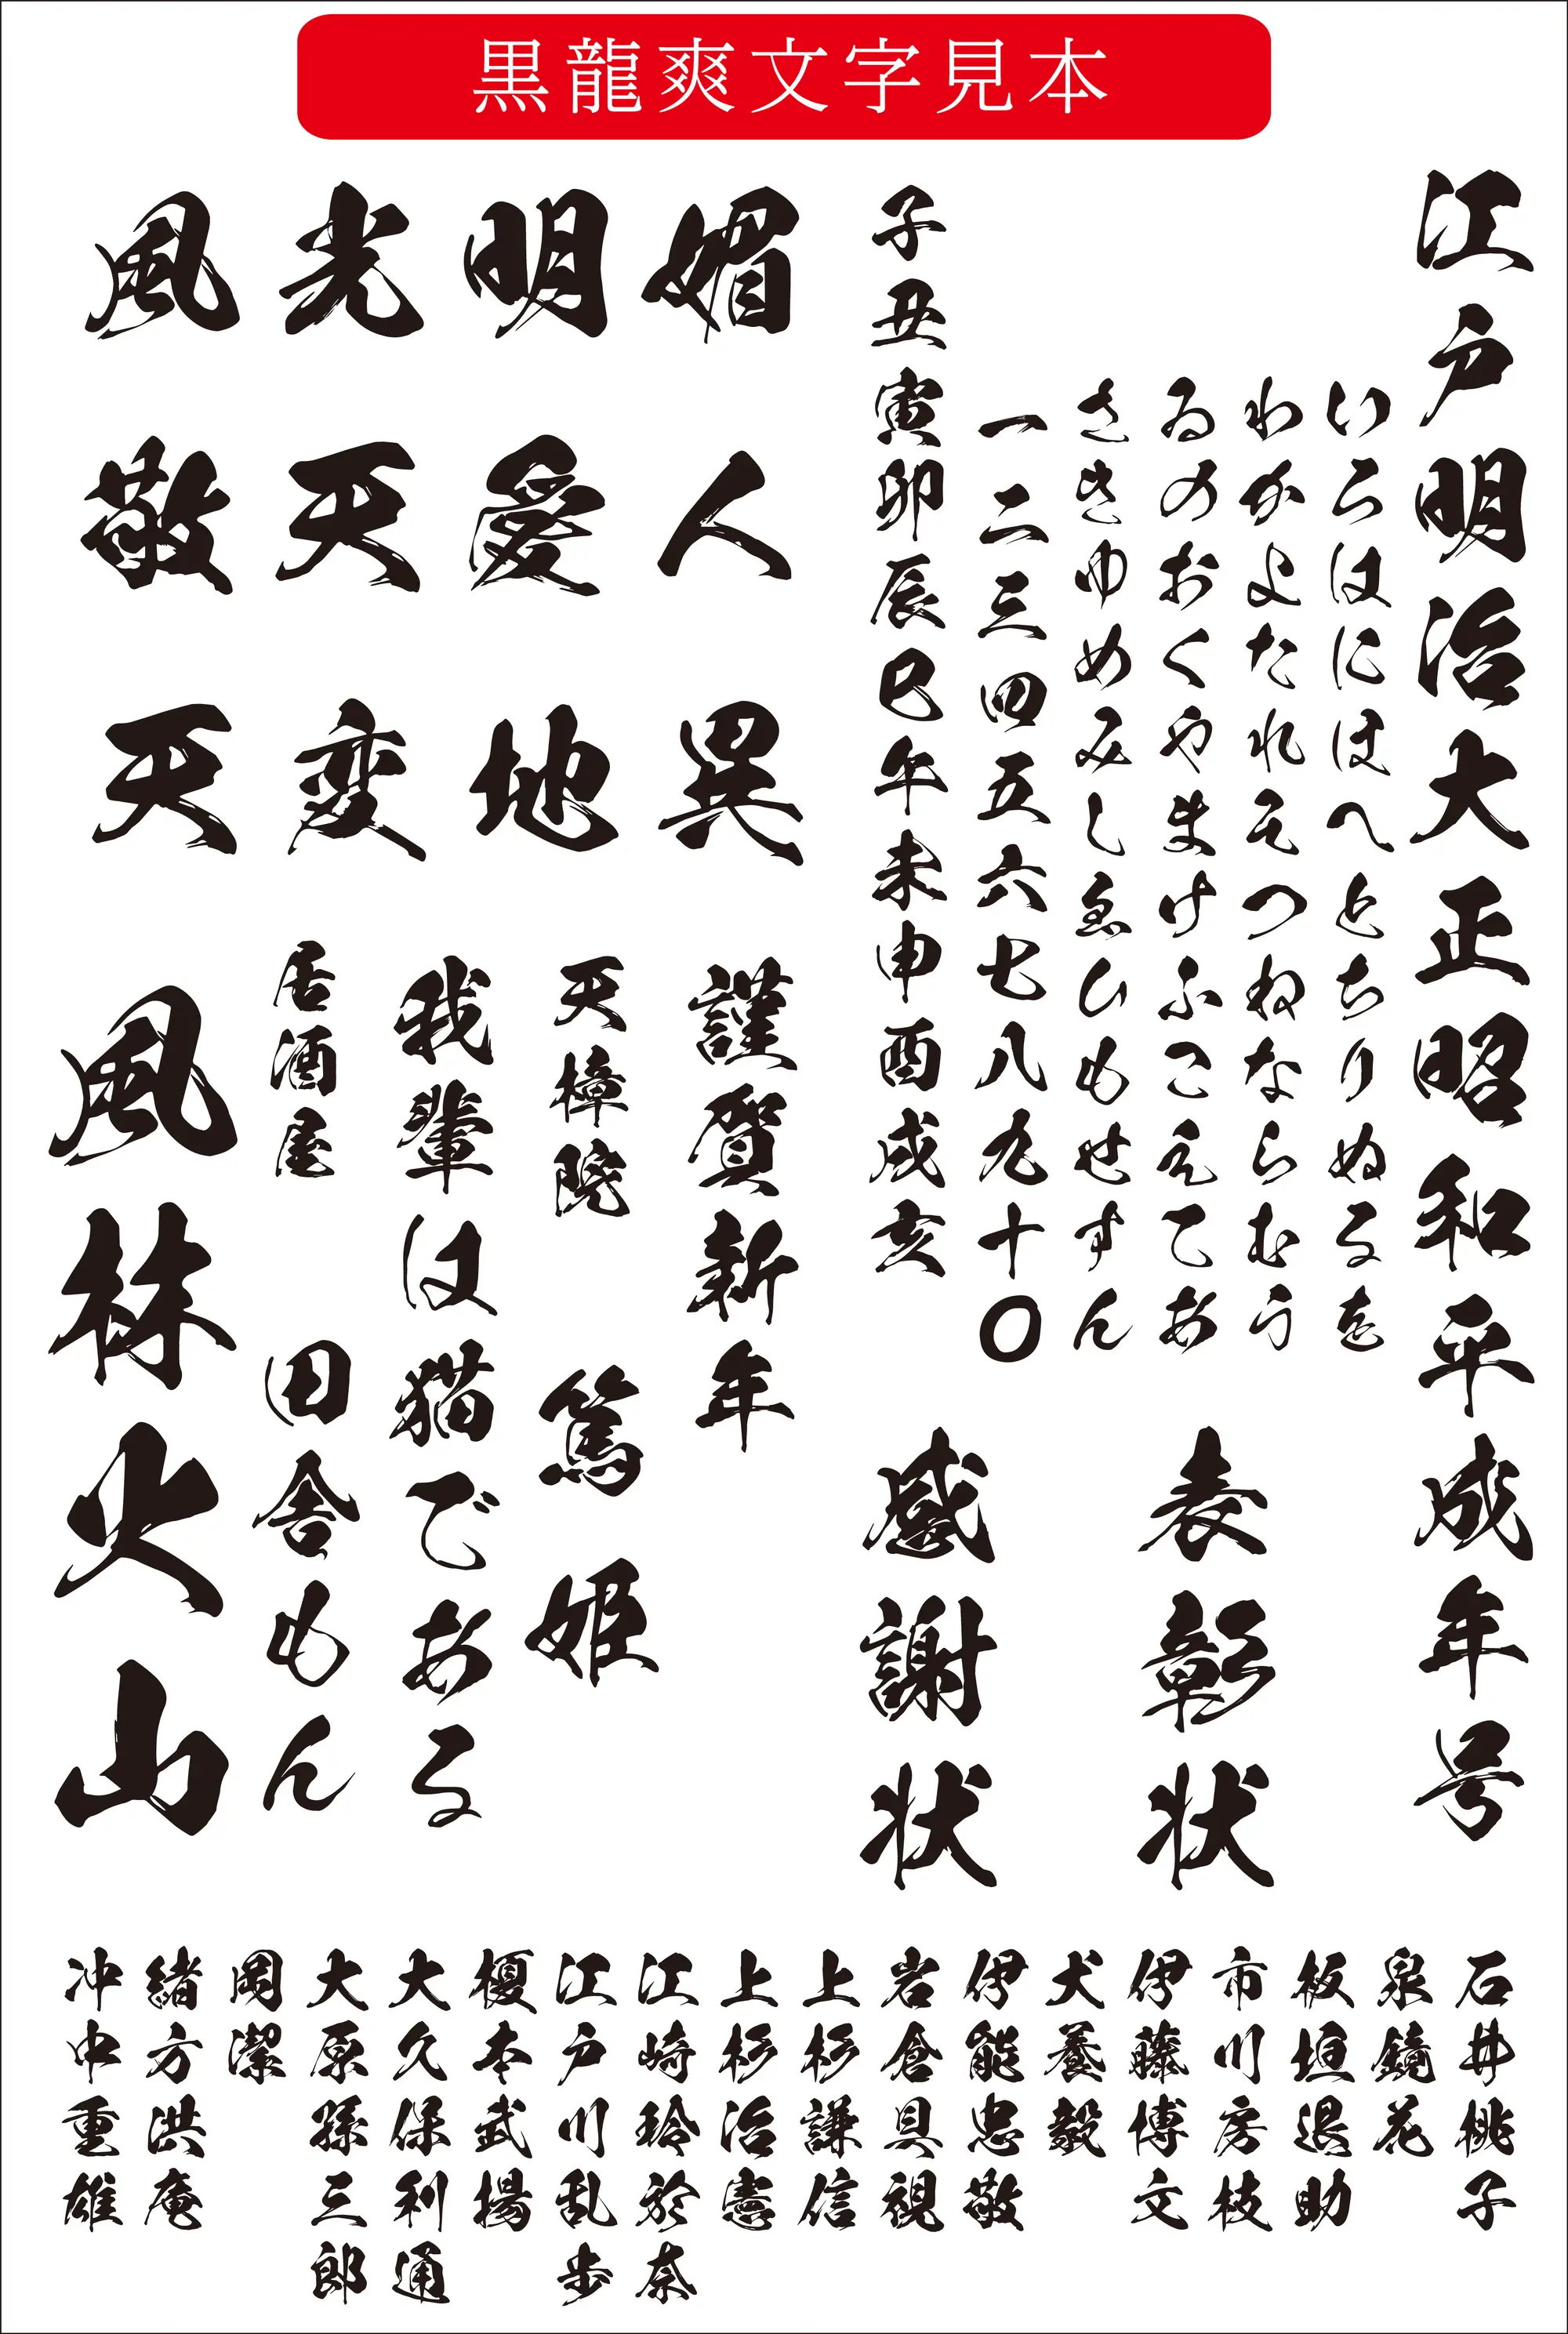 黒龍爽文字見本
江戸明治大正昭和平成年号
いろはにほへとちりぬるを
わかよたれそつねならむう
ゐのおくやまけふこえてあ
さきゆめみしゑひもせすん
一二三四五六七八九十〇
子丑寅卯辰巳午未申酉戌亥
表彰状
感謝状
風光明媚
敬天愛人
天変地異
謹賀新年
天樟院
篤姫
我輩は猫である
居酒屋
田舎もん
風林火山
石井桃子
泉鏡花
板垣退助
市川房枝
伊藤博文
犬養毅
伊能忠敬
岩倉具視
上杉謙信
上杉治憲
江崎玲於奈
江戸川乱歩
榎本武揚
大久保利通
大原孫三郎
岡潔
緒方洪庵
冲中重雄